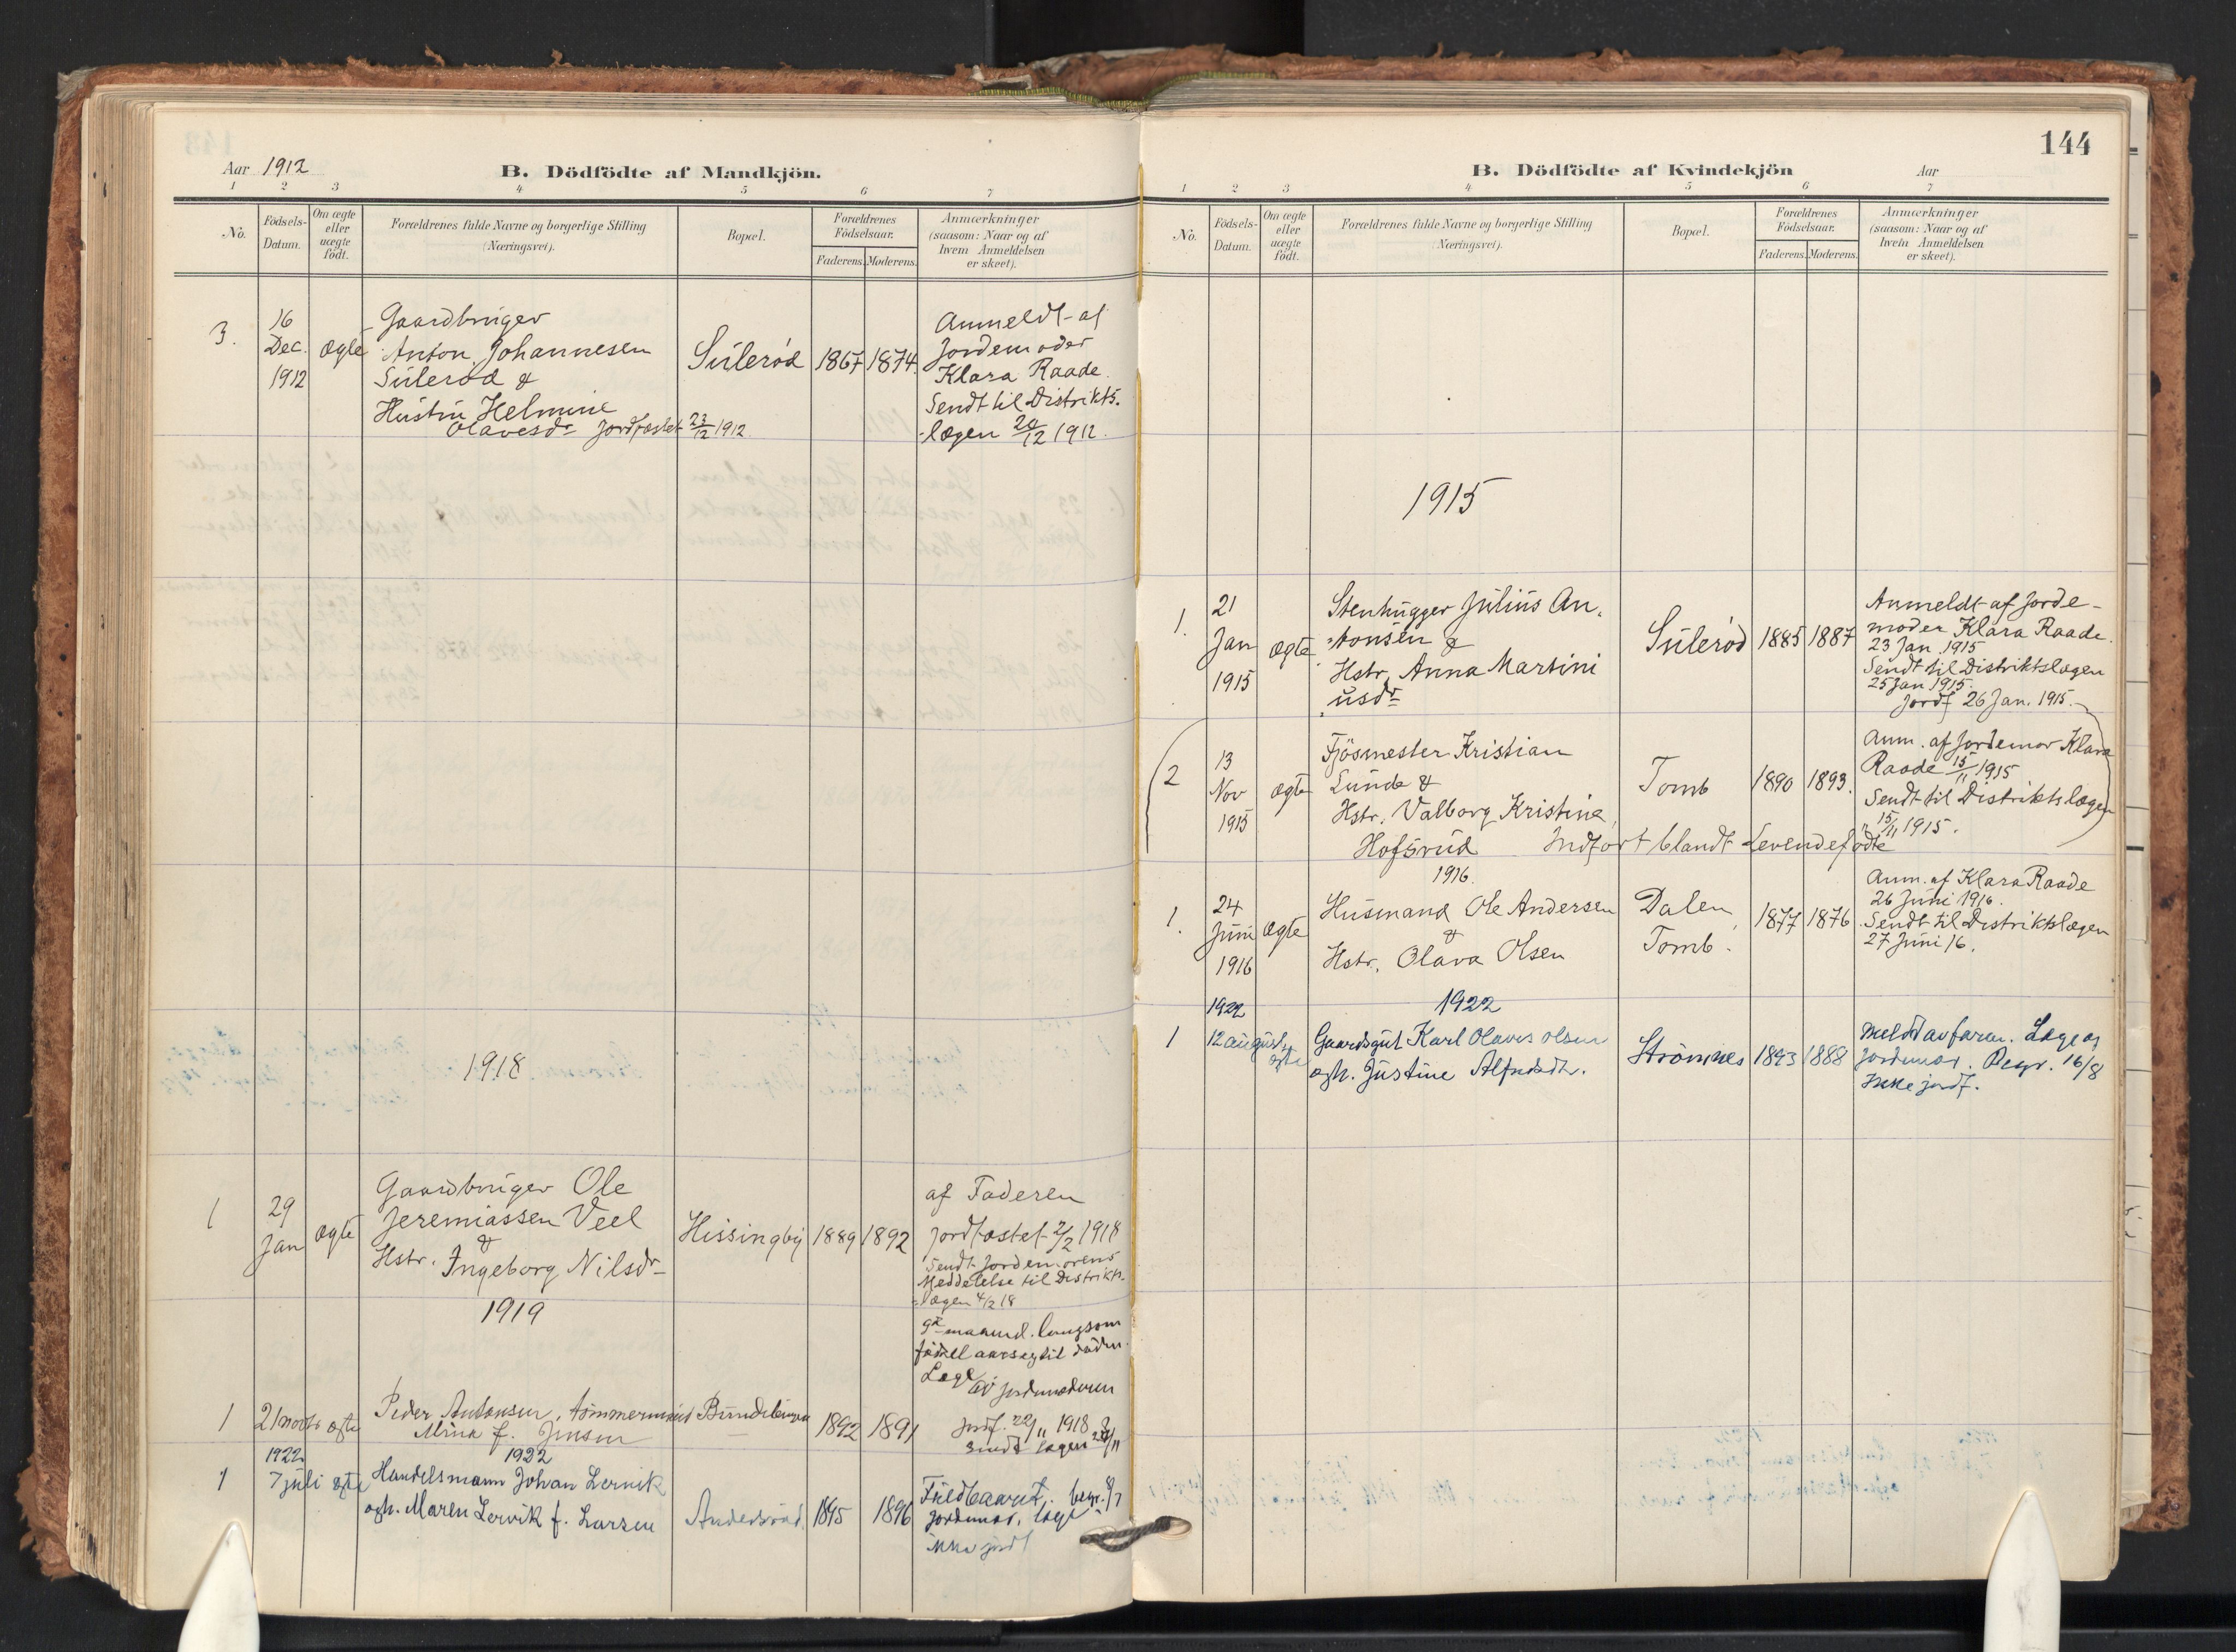 Aar 1912
B. Dödfödte af Mandkjön.
1 2 3 4 5 6 7
No.
Födsels-
Datum.
Om ægte
eller
uægte
födt.
Forældrenes fulde Navne og borgerlige Stilling
(Næringsvei).
Bopæl.
Forældrenes
Födselsaar.
Faderens.
Moderens.
Anmærkninger
(saasom: Naar og af
hvem Anmeldelsen
er skeet).
3.
16
Dec.
1912
ægte
Gaardbruger
Anton Johannesen
Sulerød &
Hustru Helmine
Olavesdr Jordfæstet 23/12 1912.
Sulerød
1867
1874.
Anmeldt af
Jordemoder
Klara Raade.
Sendt til Distrikts-
lægen 20/12 1912.
1918.
1
29
Jan
ægte
Gaardbruger Ole
Jeremiassen Veel
&
Hstr. Ingeborg Nilsdr
Hissingby
1889
1892
af Faderen
Jordfæstet 2/2 1918
Sendt Jordemorens
Meddelelse til Distrikts-
lægen 4/2 18
1919
1
21
ægte
Peder Antonsen, tömmermand
Mina f. Jensen
1892
1891
9de maaned. langsom
födsel aarsag til døden.
Læge
av jordmoderen
jordf. 22/11 1918
sendt lægen
1922
1922
1
7 juli
ægte
Handelsmann Johan Lervik
ogh. Maren Lervik f. Larsen
Andersrød.
1895
1896
Fuldbaaret.
jordmor, læge
ikke jordf
144
B. Dödfödte af Kvindekjön
Aar
1 2 3 4 5 6 7
No.
Födsels-
Datum.
Om ægte
eller
uægte
födt.
Forældrenes fulde Navne og borgerlige Stilling
(Næringsvei).
Bopæl.
Forældrenes
Födselsaar.
Faderens.
Moderens.
Anmærkninger
(saasom: Naar og af
hvem Anmeldelsen
er skeet).
1915
1.
21
Jan
1915
ægte
Stenhugger Julius An-
tonsen &
Hstr. Anna Martini
usdr
Sulerød
1885
1887
Anmeldt af Jorde-
moder Klara Raade.
23 Jan 1915
Sendt til Distriktslægen
25 Jan 1915.
Jordf 26 Jan. 1915.
2
13
Nov
1915
ægte
Fjösmester Kristian
Lunde &
Hstr. Valborg Kristine
Hofsrud Indført blandt Levendefødte
Tomb
1890
1893.
Anm. af Jordemor Klara
Raade 15/11 1915
Sendt til Distriktslægen
15/11 1915.
1916.
1.
24
Juni
1916
ægte
Husmand Ole Andersen
&
Hstr. Olava Olsen
Dalen,
Tomb.
1877
1876
Anm. af Klara Raade
26 Juni 1916.
Sendt til Distriktslægen
27 Juni 16.
1922
1922
1
12 august
ægte
Gaardsgut Karl Olaves Olsen
ogh. Justine Alfredsdtr.
Strömnes
1893
1888
Meldt av faren. Læge og
jordmor. Begr. 16/8
Ikke jordf.